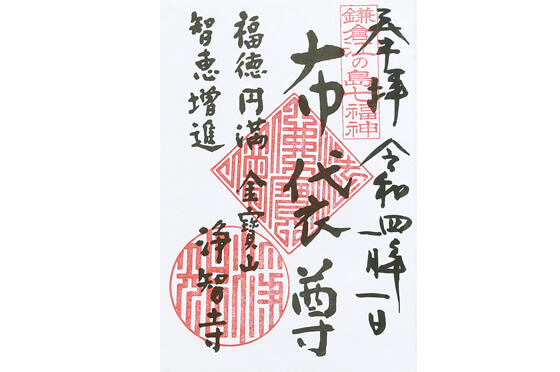 奉拝 令和四 一日
鎌倉江の島七福神
布袋尊
福徳円満
智恵増進
金寶山
浄智寺